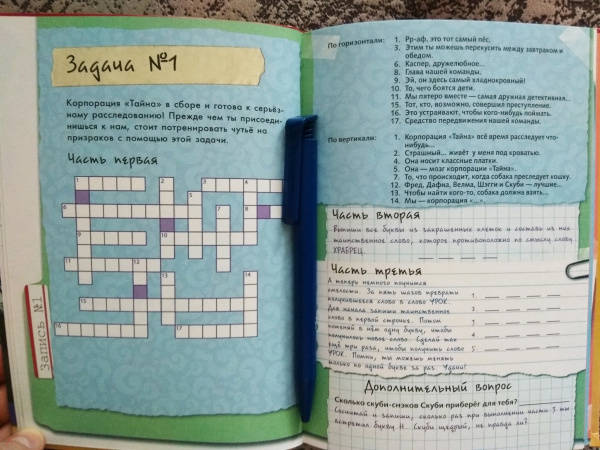 Задача №1
Корпорация «Тайна» в сборе и готова к серьёз-
ному расследованию! Прежде чем ты присоеди-
нишься к нам, стоит потренировать чутьё на
призраков с помощью этой задачи.
Часть первая
1 2 3 4 5
6 7 8
9 10
11 12
13 14
15
16 17
Запись №1
По горизонтали:
1. Рр-аф, это тот самый пёс.
3. Этим ты можешь перекусить между завтраком и
обедом.
6. Каспер, дружелюбное...
8. Глава нашей команды.
9. Эй, он здесь самый хладнокровный!
10. То, чего боятся дети.
11. Мы пятеро вместе — самая дружная детективная...
15. Тот, кто, возможно, совершил преступление.
16. Это устраивают, чтобы кого-нибудь поймать.
17. Средство передвижения нашей команды.
По вертикали:
1. Корпорация «Тайна» всё время расследует что-
нибудь...
2. Страшный... живёт у меня под кроватью.
4. Она носит классные платки.
5. Она — мозг корпорации «Тайна».
7. То, что происходит, когда собака преследует кошку.
12. Фред, Дафна, Велма, Шэгги и Скуби — лучшие...
13. Чтобы найти кого-то, собака должна взять...
14. Мы — корпорация «...».
Часть вторая
Выпиши все буквы из закрашенных клеток и составь из них
таинственное слово, которое противоположно по смыслу слову
ХРАБРЕЦ.
Часть третья
А теперь немного поучимся
смелости. За пять шагов преврати
получившееся слово в слово УРОК.
Для начала запиши таинственное
слово в первой строчке. Потом
поменяй в нём одну букву, чтобы
получилось новое слово. Сделай так
ещё три раза, чтобы получить слово
УРОК. Помни, ты можешь менять
только по одной букве за раз. Удачи!
1.
2.
3.
4.
5.
Дополнительный вопрос
Сколько скуби-снэков Скуби приберёг для тебя?
Сосчитай и запиши, сколько раз при выполнении части 3 ты
встретил букву Н. Скуби щедрый, не правда ли?